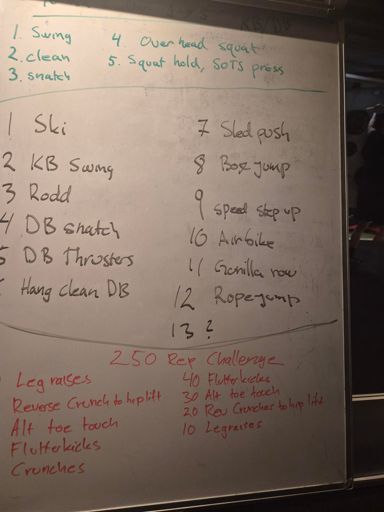 1. Swing
2. clean
3. snatch
4 Overhead squat
5. Squat hold, SOTS press
1 Ski
2 KB Swing
3 Rodd
4 DB snatch
5 DB Thrusters
Hang clean DB
7 Sled push
8 Box jump
9 speed step up
10 Airbike
11 Gorilla row
12 Ropejump
13 ?
250 Rep Challenge
Leg raises
Reverse Crunch to hip lift
Alt toe touch
Flutterkicks
Crunches
40 Flutterkicks
30 Alt toe touch
20 Rev Crunches to hip lift
10 Legraises